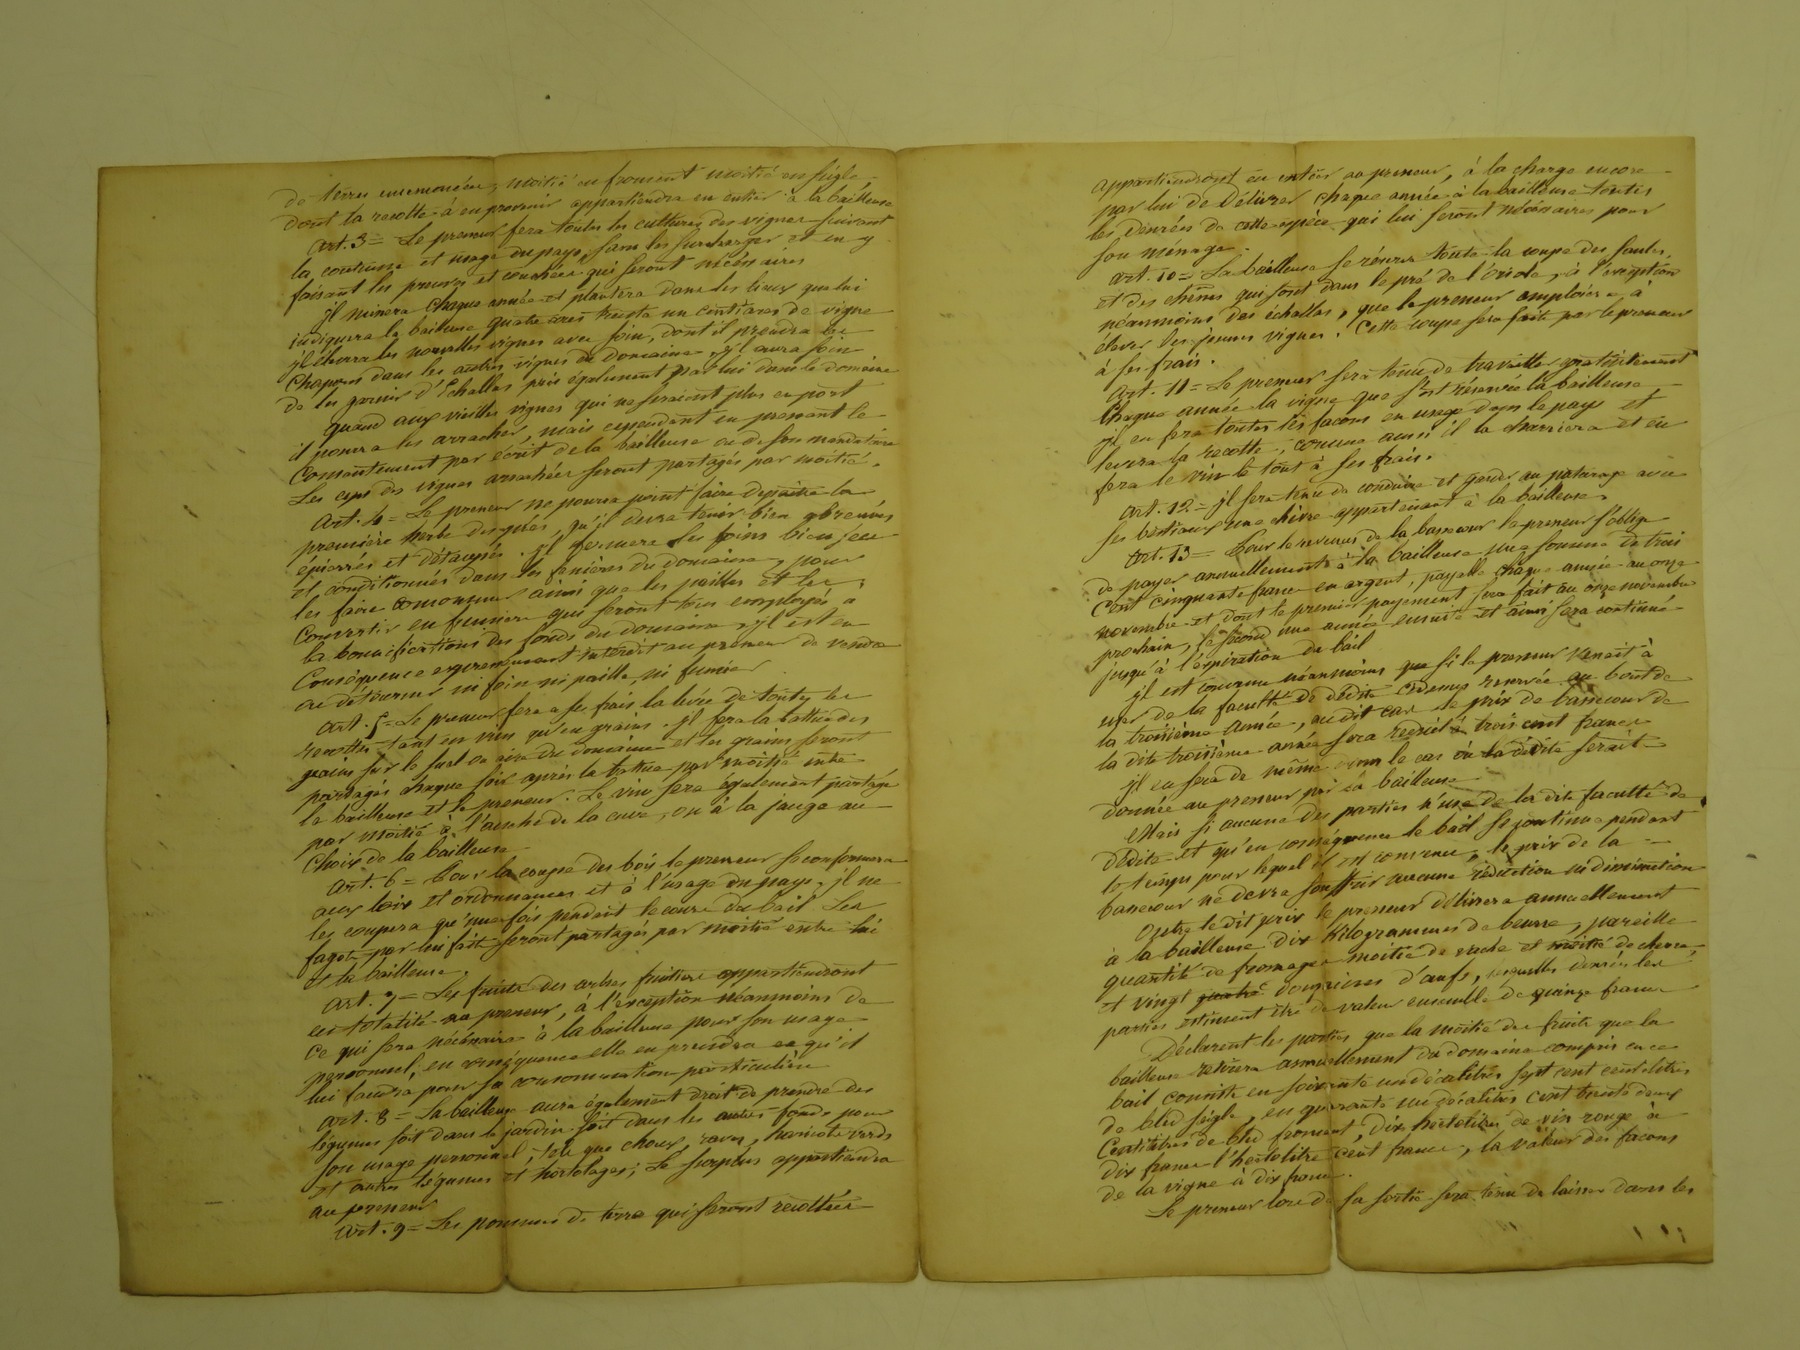 de terres ensemencées, moitié en froment moitié en seigle,
dont la recolte à en provenir appartiendra en entier à la bailleuse
Art. 3 = Le preneur fera toutes les cultures des vignes suivant
la coutume et usage du pays, sans les surcharger et en y
faisant les preuves et couchées qui seront nécessaires
il minera chaque année et plantera dans les lieux que lui
indiquera la bailleuse quatre ares trente un centiares de vigne
il élevera les nouvelles vignes avec soin, dont il prendra les
chapons dans les autres vignes du domaine, il aura soin
de les garnir d'échallas pris également par lui dans le domaine
quand aux vieilles vignes qui ne seraient plus en port
il pourra les arracher, mais cependant en prenant le
consentement par écrit de la bailleuse ou de son mandataire
Les ceps des vignes arrachées seront partagés par moitié.
Art. 4 = Le preneur ne pourra point faire depaitre la
première herbe des prés, qu'il devra tenir bien abreuvés
épierrés et détaupés. il fermera les foins bien secs
et conditionnés dans les fenières du domaine, pour
les faire consommer ainsi que les pailles et les
convertir en fumier qui seront tous employés a
la bonnification des fonds du domaine, il est en
conséquence expressement interdit au preneur de vendre
ou détourner ni foin ni paille, ni fumier
Art. 5 = Le preneur fera a ses frais la levée de toutes les
recoltes tant en vin qu'en grains. il fera la battue des
grains sur le suel ou aire du domaine et les grains seront
partagés chaque fois après la battue par moitié entre
la bailleuse et le preneur. Le vin sera également partagé
par moitié à l'anche de la cuve, ou à la jauge au
choix de la bailleuse
Art. 6 = Pour la coupe des bois le preneur se conformera
aux loix et ordonnances et à l'usage du pays, il ne
les coupera qu'une fois pendant le cours du bail Les
fagots par lui faits seront partagés par moitié entre lui
et la bailleuse.
Art. 7 = Les fruits des arbres fruitiers appartiendront
en totalité au preneur, à l'exception néanmoins de
ce qui sera nécessaire à la bailleuse pour son usage
personnel, en conséquence elle en prendra ce qu'il
lui faudra pour sa consommation particulière
Art. 8 = La bailleuse aura également droit de prendre des
légumes soit dans le jardin soit dans les autres fonds pour
son usage personnel, tels que choux, raves, haricots verds
et autres légumes et hortolages; Le surplus appartiendra
au preneur
Art. 9 = Les pommes de terre qui seront recoltées
appartiendront en entier au preneur, à la charge encore
par lui de délivrer chaque année à la bailleuse toutes
les denrées de cette espèce qui lui seront nécessaires pour
son ménage.
Art. 10 = La bailleuse se réserve toute la coupe des saules,
et des chênes qui sont dans le pré de l'oriol, à l'exception
néanmoins des échallas, que le preneur emploiera à
élever les jeunes vignes. Cette coupe sera faite par le preneur
à ses frais.
Art. 11 = Le preneur sera tenu de travailler gratuitement
chaque année la vigne que s'est réservée la bailleuse
il en fera toutes les façons en usage dans le pays et
levera la recolte, comme aussi il la charriera et en
fera le vin le tout à ses frais.
Art. 12 = il sera tenu de conduire et garder au paturage avec
ses bestiaux une chèvre appartenant à la bailleuse.
Art. 13 = Pour le revenu de la bassecour le preneur s'oblige
de payer annuellement à la bailleuse une somme de trois
cent cinquante francs en argent, payable chaque année au onze
novembre et dont le premier payement sera fait au onze novembre
prochain, le second une année ensuite et ainsi sera continué
jusqu'à l'expiration du bail
il est convenu néanmoins que si le preneur venait à
user de la faculté de dédite cidessus reservée au bout de
la troisième année, au dit cas le prix de bassecour de
la dite troisième année sera reduit à trois cent francs
il en sera de même dans le cas où la dédite serait
donnée au preneur par la bailleuse
Mais si aucune des parties n'use de la dite faculté de
dédite et qu'en conséquence le bail se continue pendant
le temps pour lequel il est convenu, le prix de la
bassecour ne devra souffrir aucune réduction ni diminution
Outre le dit prix le preneur délivrera annuellement
à la bailleuse dix kilogrammes de beurre, pareille
quantité de fromages moitié de vache et moitié de chèvre,
et vingt quatre douzaines d'œufs, lesquelles denrées les
parties estiment être de valeur ensemble de quinze francs
Déclarent les parties que la moitié des fruits que la
bailleuse retirera annuellement du domaine compris en ce
bail consiste en soixante un décalitres sept cent centilitres
de bled seigle, en quarante un décalitres cent trente deux
centilitres de bled froment, dix hectolitres de vin rouge à
dix francs l'hectolitre cent francs, la valeur des façons
de la vigne à dix francs.
Le preneur lors de sa sortie sera tenu de laisser dans les